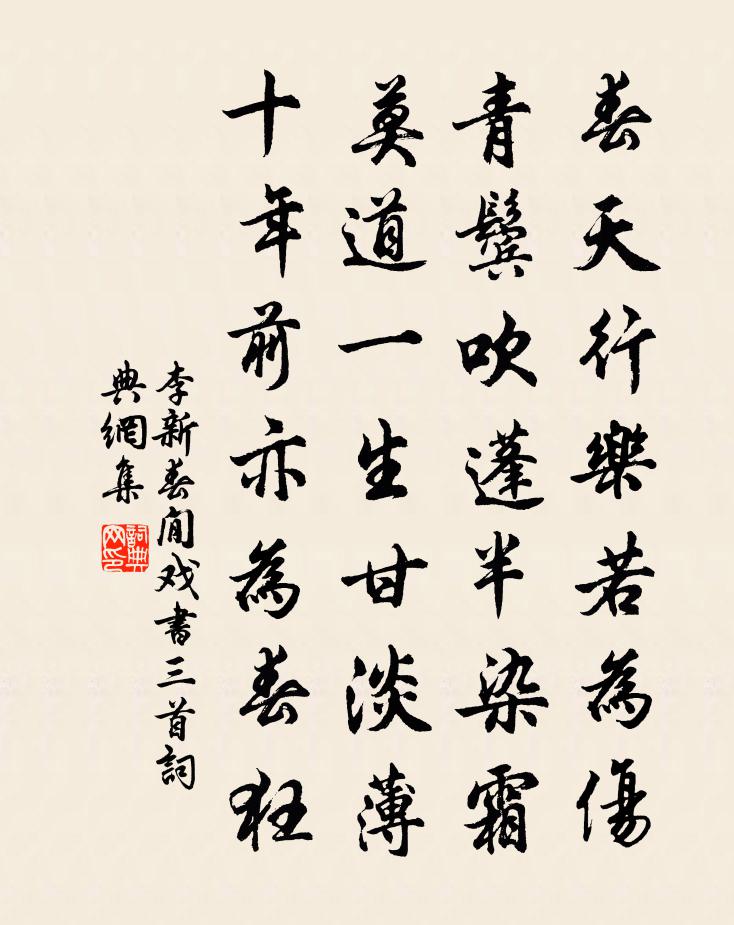 春天行樂若為傷
青鬢吹蓬半染霜
莫道一生甘淡薄
十年前亦為春狂
李新春閒戏書三首詞
典網集
詞典網印